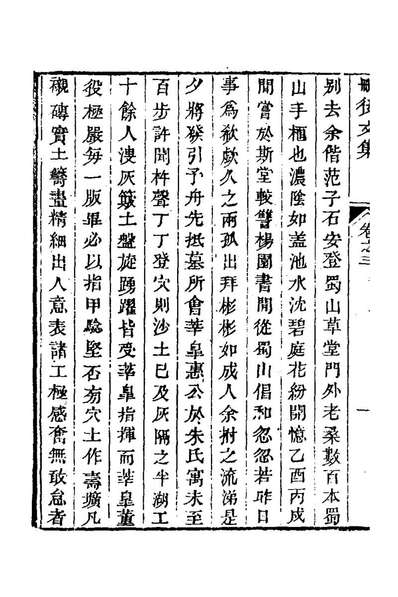 別去余偕范子石安登蜀山草堂門外老桑數百本蜀
山手植也濃陰如蓋池水沈碧庭花紛開憶乙酉丙戌
間嘗於斯堂較讐楊園書開從蜀山倡和忽忽若昨日
事爲欷歔久之兩孤出拜彬彬如成人余拊之流涕是
夕將發引予舟先抵墓所會莘臯惠公於朱氏寓未至
百步許聞杵聲丁丁登穴則沙土已及灰隔之半湖工
十餘人溲灰簸土盤旋踴躍皆受莘臯指揮而莘臯董
役極嚴每一版畢必以指甲驗堅石旁穴土作壽壙凡
襯磚實土籌畫精細出人意表諸工極感奮無敢怠者
文集
卷之三
一